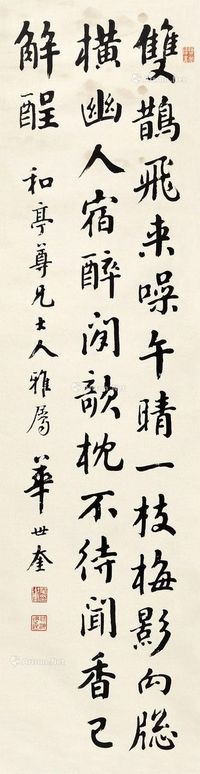 雙鵲飛來噪午晴一枝梅影向牕
橫幽人宿醉閒欹枕不待聞香已
解酲
和亭尊兄大人雅屬
華世奎